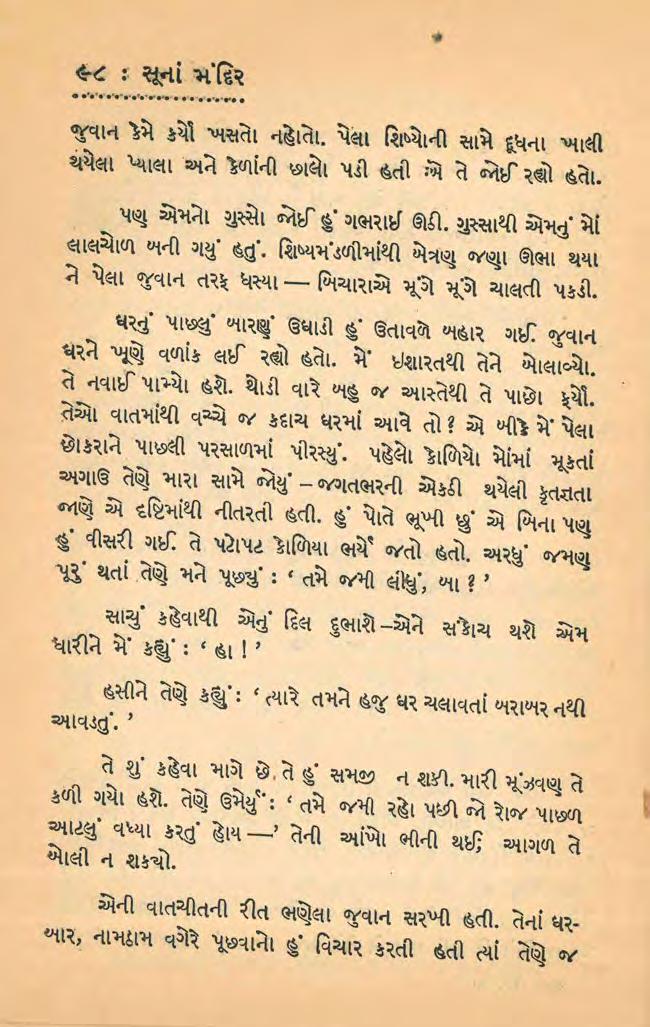 ૯૮ : સૂનાં મંદિર
જુવાન કેમે કર્યો ખસતો નહોતો. પેલા શિષ્યોની સામે દૂધના ખાલી
થયેલા પ્યાલા અને કેળાંની છાલો પડી હતી એ તે જોઈ રહ્યો હતો.
પણ એમનો ગુસ્સો જોઈ હું ગભરાઈ ઊઠી. ગુસ્સાથી એમનું મોં
લાલચોળ બની ગયું હતું. શિષ્યમંડળીમાંથી બેત્રણ જણા ઊભા થયા
ને પેલા જુવાન તરફ ધસ્યા — બિચારાએ મૂંગે મૂંગે ચાલતી પકડી.
ઘરનું પાછલું બારણું ઉઘાડી હું ઉતાવળે બહાર ગઈ. જુવાન
ઘરને ખૂણે વળાંક લઈ રહ્યો હતો. મેં ઇશારતથી તેને બોલાવ્યો.
તે નવાઈ પામ્યો હશે. થોડી વારે બહુ જ આસ્તેથી તે પાછો ફર્યો.
તેઓ વાતમાંથી વચ્ચે જ કદાચ ઘરમાં આવે તો ? એ બીકે મેં પેલા
છોકરાને પાછલી પરસાળમાં પીરસ્યું. પહેલો કોળિયો મોંમાં મૂકતાં
અગાઉ તેણે મારા સામે જોયું – જગતભરની એકઠી થયેલી કૃતજ્ઞતા
જાણે એ દૃષ્ટિમાંથી નીતરતી હતી. હું પોતે ભૂખી છું એ બિના પણ
હું વીસરી ગઈ. તે પટોપટ કોળિયા ભર્યે જતો હતો. અરધું જમણ
પૂરું થતાં તેણે મને પૂછ્યું : ‘ તમે જમી લીધું, બા ? ’
સાચું કહેવાથી એનું દિલ દુભાશે – એને સંકોચ થશે એમ
ધારીને મેં કહ્યું : ‘ હા ! ’
હસીને તેણે કહ્યું : ‘ ત્યારે તમને હજુ ઘર ચલાવતાં બરાબર નથી
આવડતું. ’
તે શું કહેવા માગે છે તે હું સમજી ન શકી. મારી મૂંઝવણ તે
કળી ગયો હશે. તેણે ઉમેર્યું : ‘ તમે જમી રહો પછી જો રોજ પાછળ
આટલું વધ્યા કરતું હોય —’ તેની આંખો ભીની થઈ; આગળ તે
બોલી ન શક્યો.
એની વાતચીતની રીત ભણેલા જુવાન સરખી હતી. તેનાં ઘર-
બાર, નામઠામ વગેરે પૂછવાનો હું વિચાર કરતી હતી ત્યાં તેણે જ